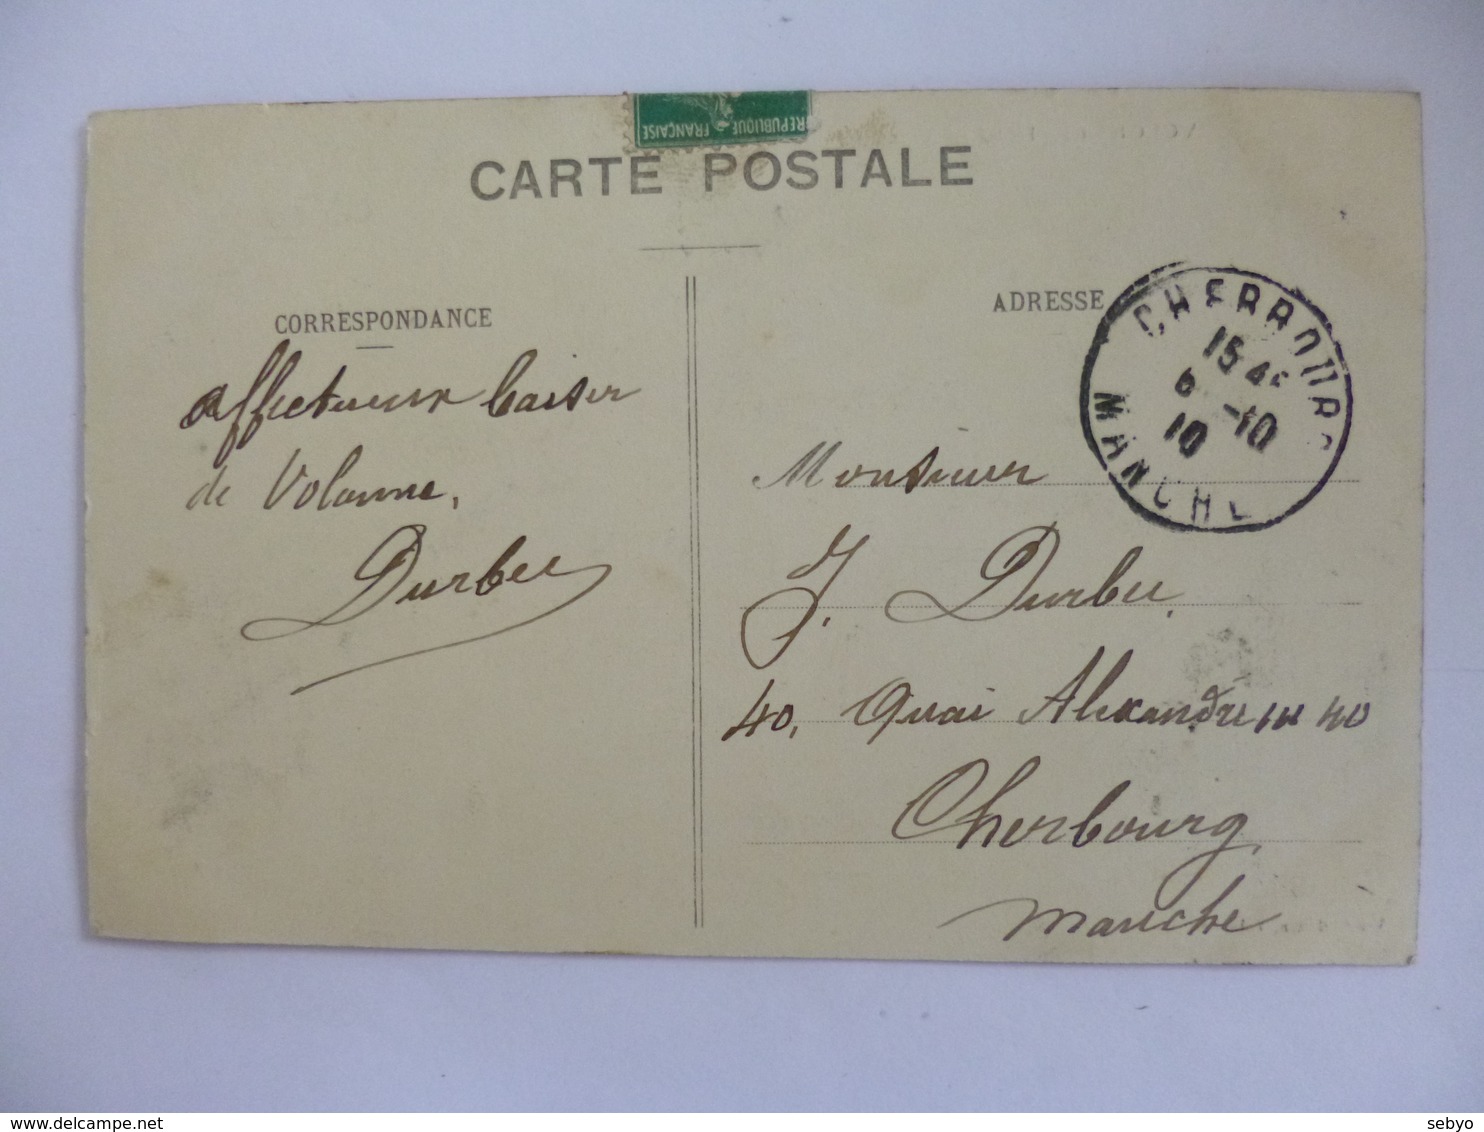 REPUBLIQUE FRANÇAISE
CARTE POSTALE
CORRESPONDANCE
affectueux baiser
de Volonne,
Durbec
ADRESSE
CHERBOURG
15 45
6 -10
10
MANCHE
Monsieur
J. Durbec
40, Quai Alexandre III 40
Cherbourg
Manche
delcampe.net
sebyo